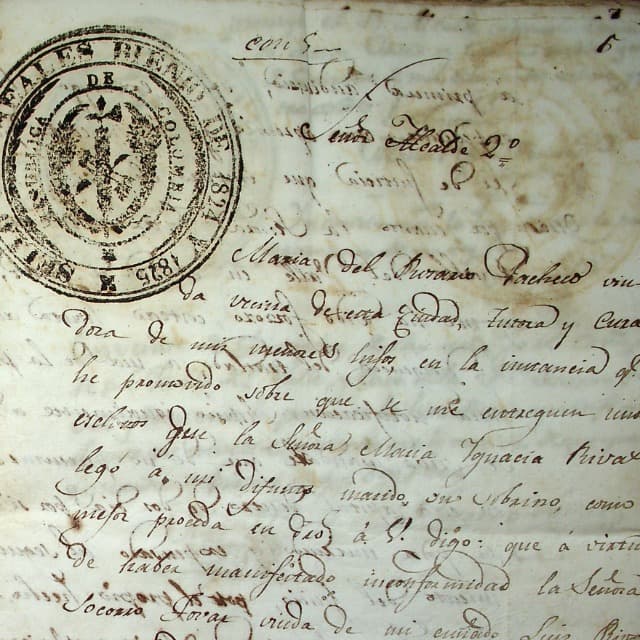 REALES BIENIO DE 1824 Y 1825
REPUBLICA DE COLOMBIA
Señor Alcalde 2.º
Maria del Rosario Pacheco viu
da vecina de esta Ciudad, tutora y cura
dora de mis menores hijos, en la instancia q
he promovido sobre que se me entreguen unos
esclavos que la Señora Maria Ignacia Rivas
legó a mi difunto marido, su sobrino, como
mejor proceda en dro á V. digo: que á virtu
de haber manifestado inconformidad la Señora
Socorro Tovar viuda de mi cuñado Luis